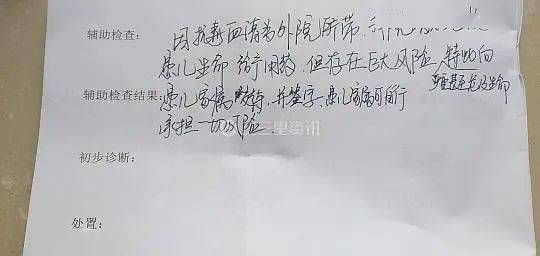 辅助检查： 因抗毒血清为外院所带，
患儿生命 给予用药，但存在巨大风险，特此向
严重甚至危及生命
辅助检查结果：患儿家属交待，并签字，患儿家属可自行
承担一切风险
三里资讯
初步诊断：
处置：